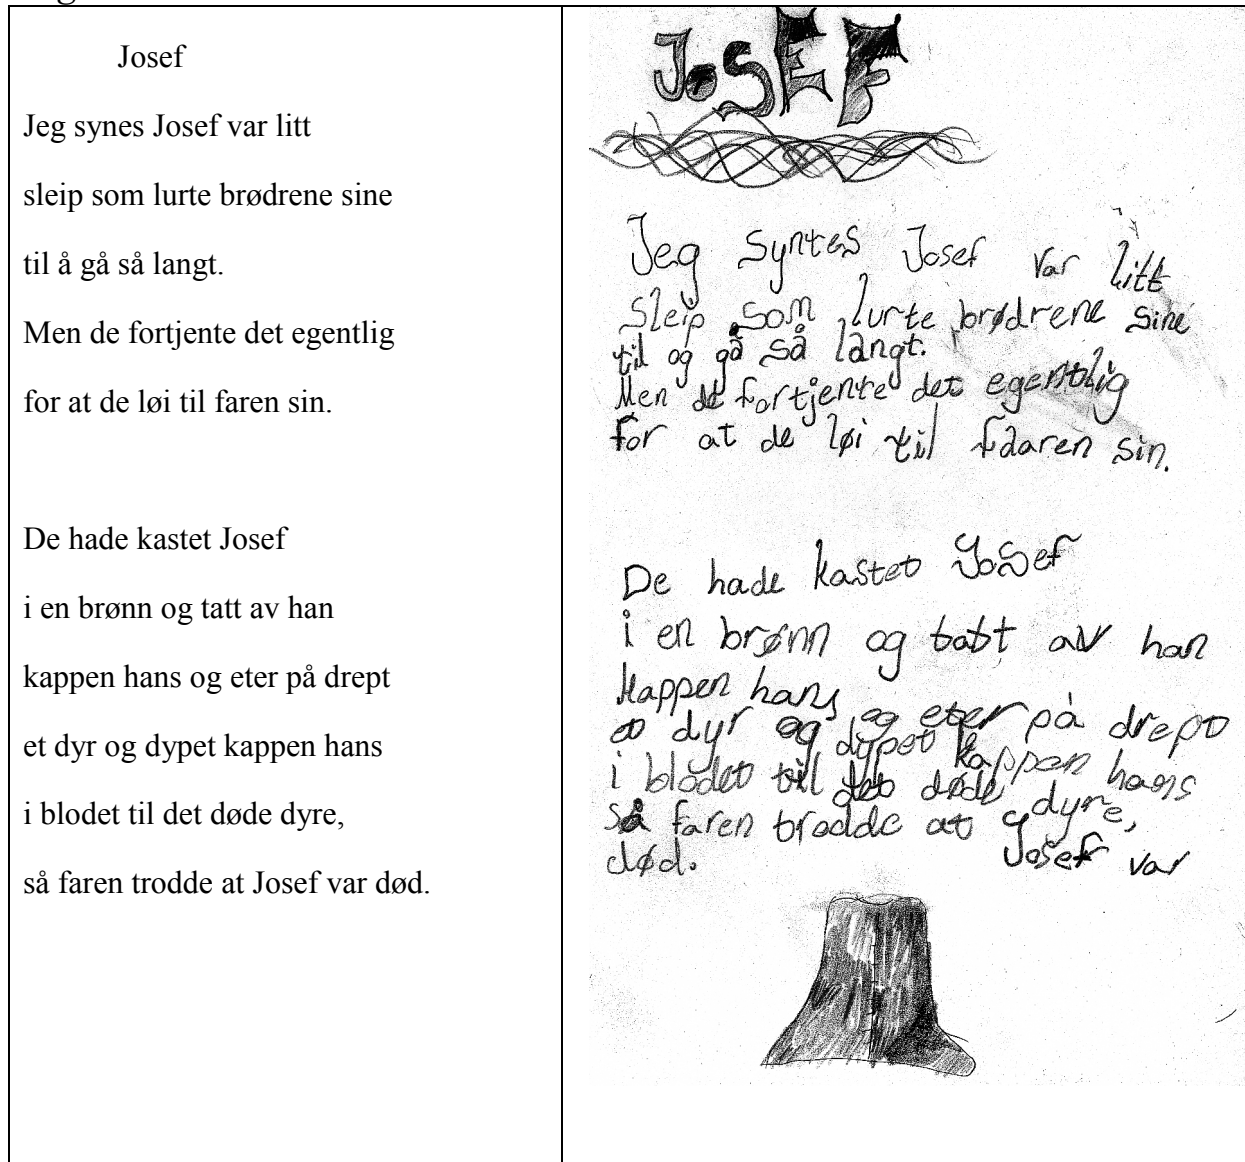 Josef
Jeg synes Josef var litt
sleip som lurte brødrene sine
til å gå så langt.
Men de fortjente det egentlig
for at de løi til faren sin.
De hade kastet Josef
i en brønn og tatt av han
kappen hans og eter på drept
et dyr og dypet kappen hans
i blodet til det døde dyre,
så faren trodde at Josef var død.
JoSEF
Jeg syntes Josef var litt
sleip som lurte brødrene sine
til og gå så langt.
Men de fortjente det egentlig
for at de løi til fdaren sin.
De hade kastet Josef
i en brønn og tatt av han
kappen hans og eter på drept
et dyr og dypet kappen hans
i blodet til det døde dyre,
så faren trodde at Josef var
død.